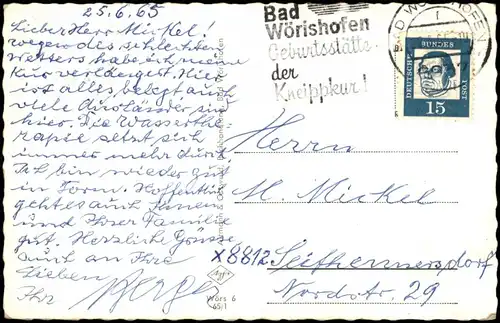 25.6.65
Lieber Herr Mickel!
wegen des schlechten
Wetters habe ich meine
Kur verlängert. Hier
ist alles belegt auch
viele Ausländer sind
hier. Die Wasserthe-
rapie setzt sich
immer mehr durch
Ich bin wieder gut
in Form. Hoffentlich
geht es auch Ihnen
und Ihrer Familie
gut. Herzliche Grüsse
auch an Ihre
Lieben
Ihr
Bad
Wörishofen
Geburtsstätte
der
Kneippkur!
BAD WÖRISHOFEN
DEUTSCHE BUNDESPOST
15
Herrn
M. Mickel
X8812 Seifhennersdorf
Nordstr. 29
Agfa
Wörs 6
65/1